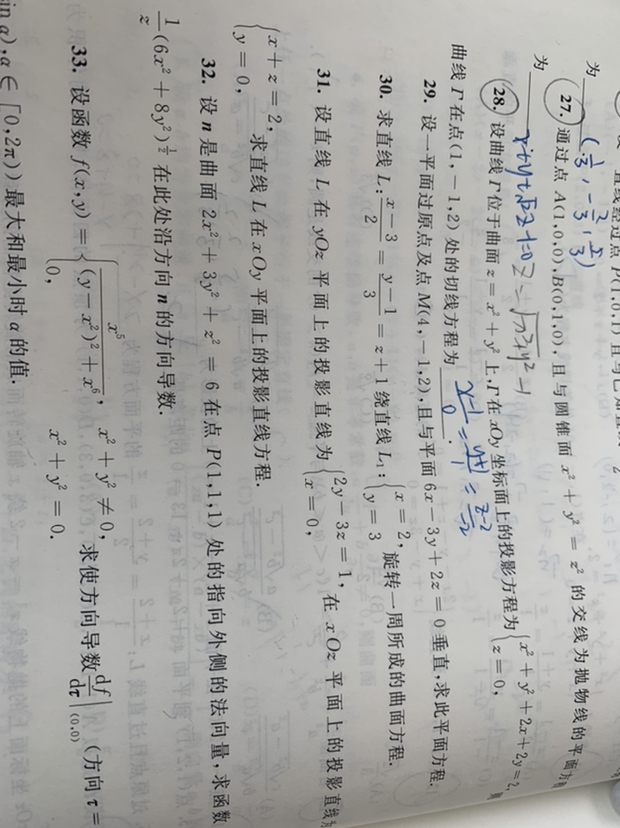 直线经过点P(1,0,1)且与已知直线
为 (1/3, -2/3, 5/3)
27. 通过点 A(1,0,0),B(0,1,0),且与圆锥面 x² + y² = z² 的交线为抛物线的平面方
为 x+y+√2z-1=0
28. 设曲线 Γ 位于曲面 z = x² + y² 上,Γ 在 xOy 坐标面上的投影方程为 { x² + y² + 2x + 2y = 2, z = 0,
曲线 Γ 在点(1, -1,2) 处的切线方程为 (x-1)/0 = (y+1)/1 = (z-2)/-2
29. 设一平面过原点及点 M(4, -1,2),且与平面 6x - 3y + 2z = 0 垂直,求此平面方程.
30. 求直线 L: (x-3)/2 = (y-1)/3 = z + 1 绕直线 L₁: { x = 2, y = 3 旋转一周所成的曲面方程.
31. 设直线 L 在 yOz 平面上的投影直线为 { 2y - 3z = 1, x = 0, 在 xOz 平面上的投影直线为
{ x + z = 2, y = 0, 求直线 L 在 xOy 平面上的投影直线方程.
32. 设 n 是曲面 2x² + 3y² + z² = 6 在点 P(1,1,1) 处的指向外侧的法向量,求函数
1/z (6x² + 8y²)^(1/2) 在此处沿方向 n 的方向导数.
33. 设函数 f(x,y) = { x⁵/((y - x²)² + x⁶), x² + y² ≠ 0, 0, x² + y² = 0. 求使方向导数 df/dτ|(0,0) (方向 τ =
in α),α ∈ [0,2π)) 最大和最小时 α 的值.